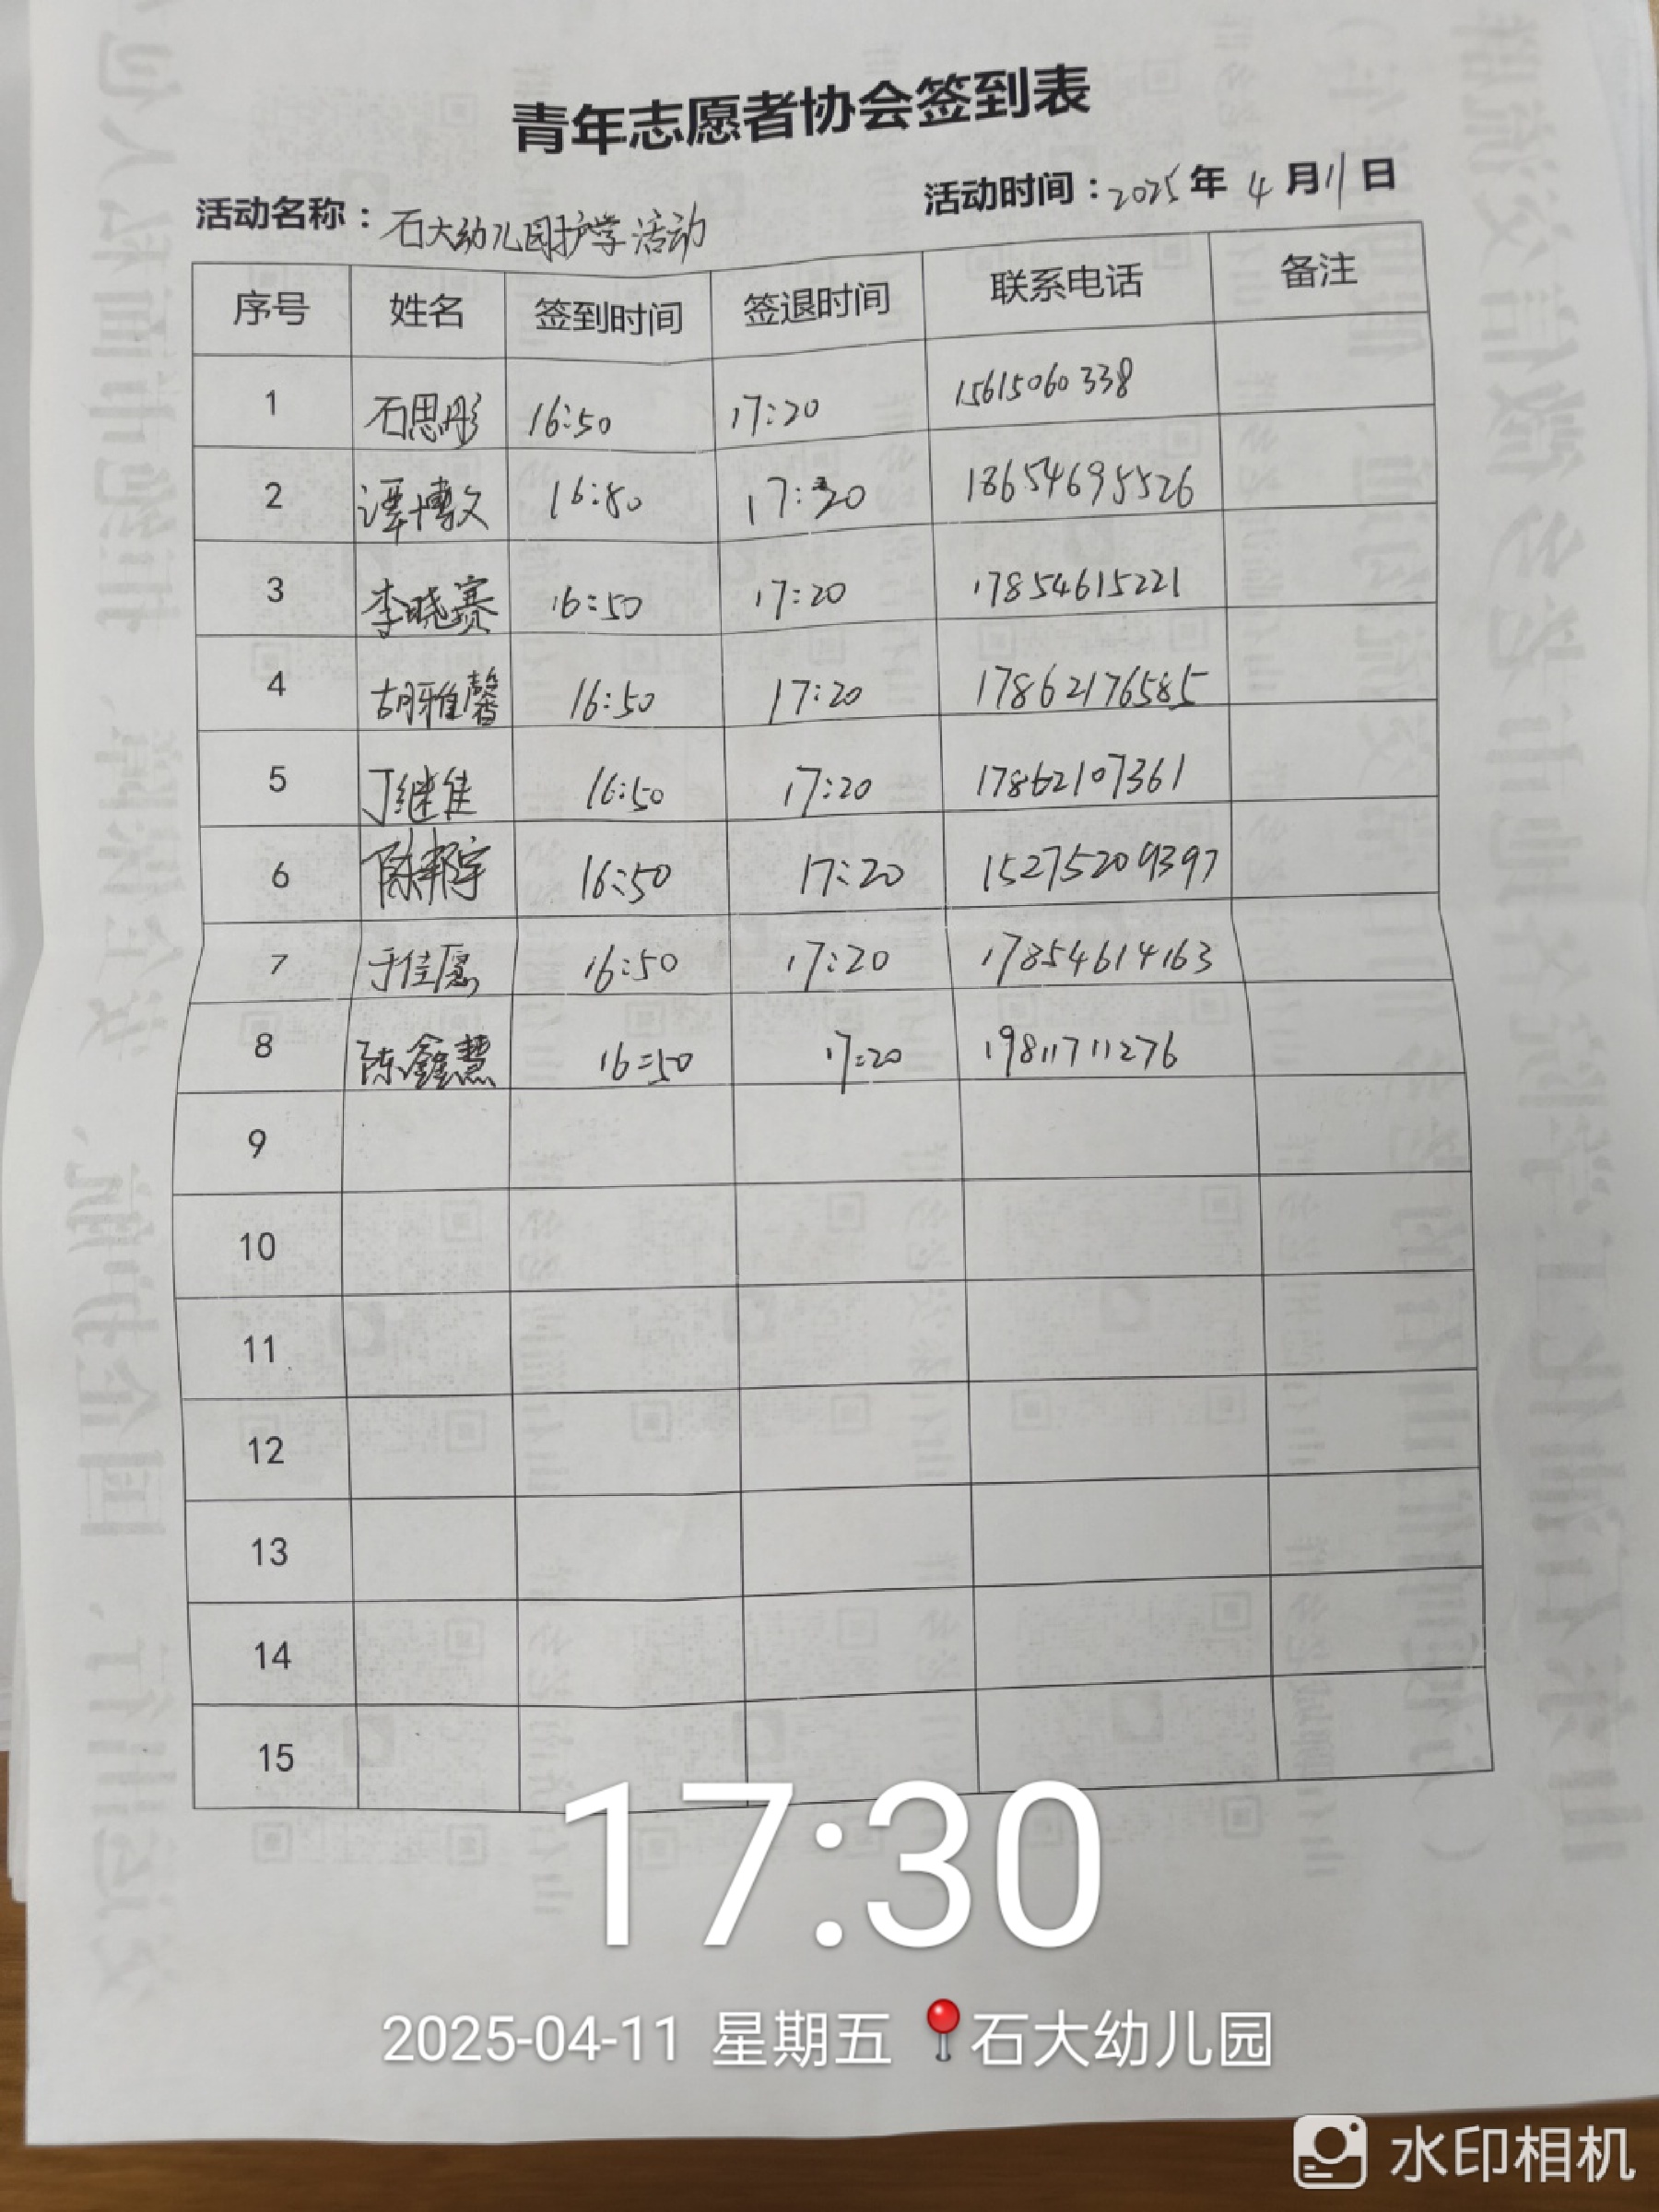 青年志愿者协会签到表
活动名称：石大幼儿园护学活动 活动时间：2025年 4 月 11 日
序号 姓名 签到时间 签退时间 联系电话 备注
1 石思彤 16:50 17:20 15615060338
2 谭博文 16:50 17:20 18654695526
3 李晓赛 16:50 17:20 17854615221
4 胡雅馨 16:50 17:20 17862176585
5 丁继佳 16:50 17:20 17862107361
6 陈邦宇 16:50 17:20 15275209397
7 于佳愿 16:50 17:20 17854614163
8 陈鑫慧 16:50 17:20 19811711276
9
10
11
12
13
14
15
17:30
2025-04-11 星期五 石大幼儿园
水印相机